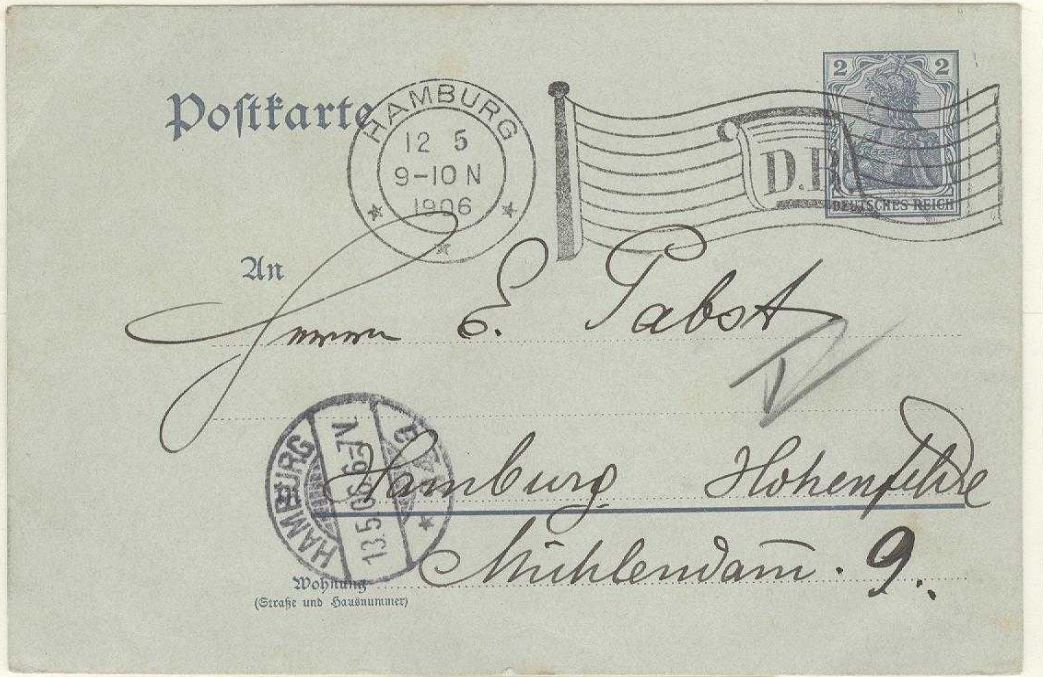 Postkarte
HAMBURG
12 5
9-10 N
1906
D.R.
2 2
DEUTSCHES REICH
An
Herrn E. Pabst
Hamburg Hohenfelde
HAMBURG
13.5.06.6-7V.
Mühlendam̅. 9.
Wohnung
(Straße und Hausnummer)